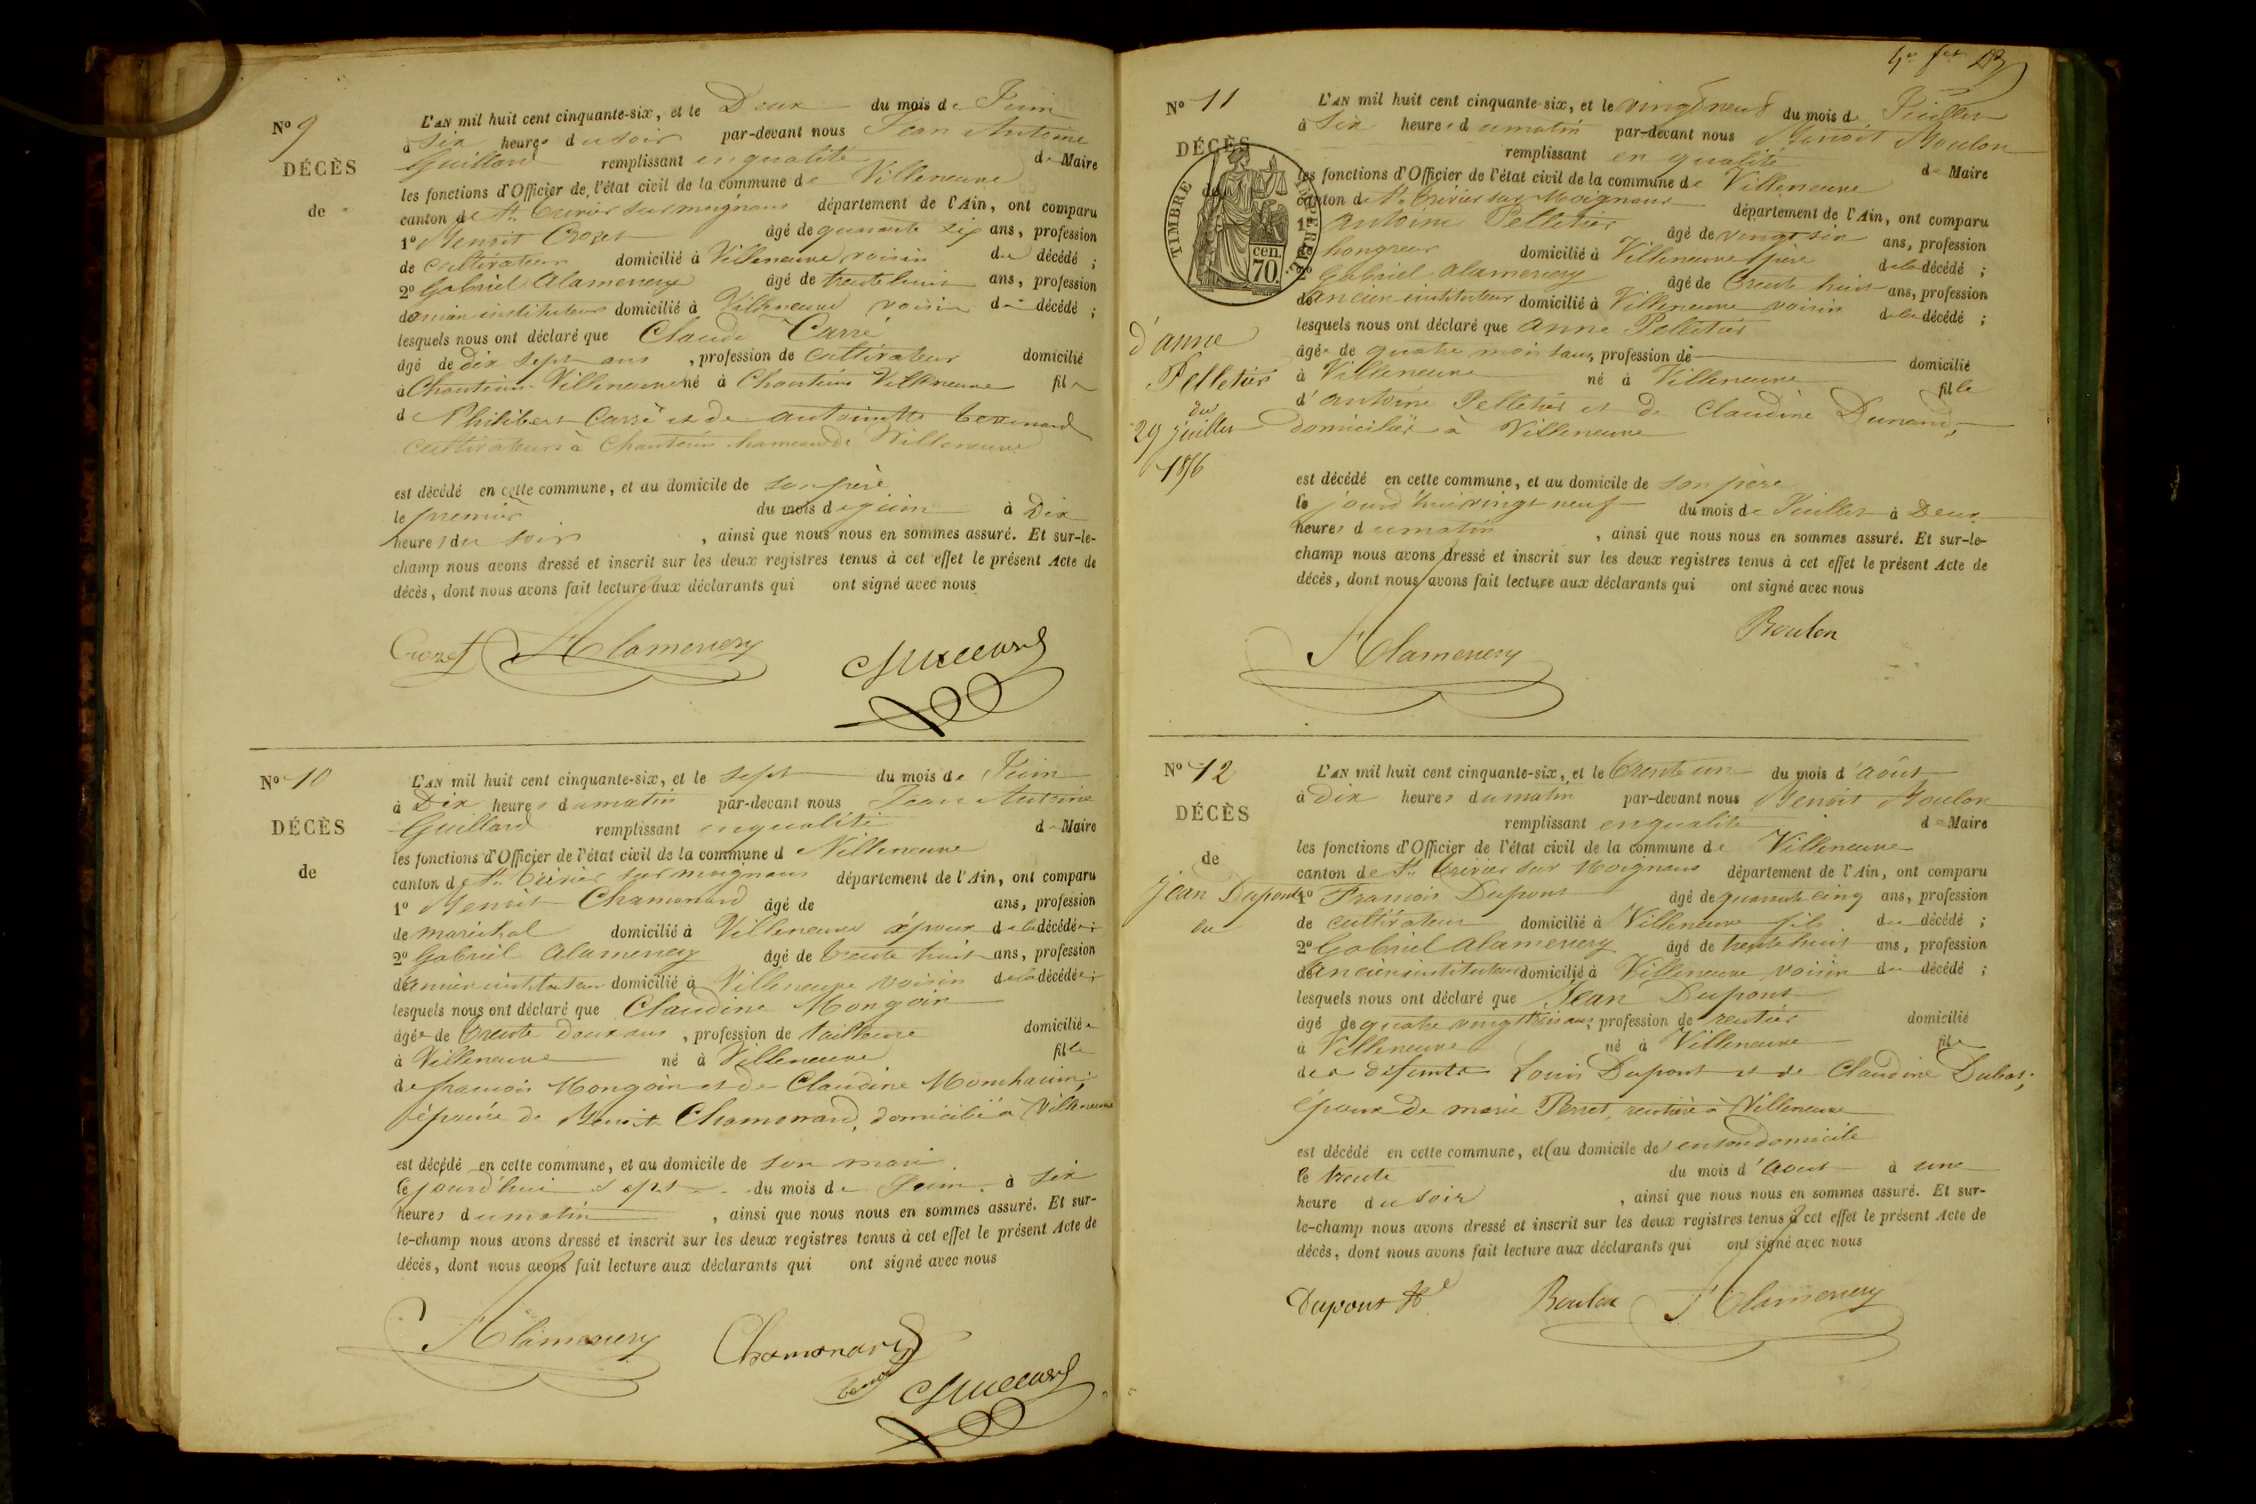 Nº 9
DÉCÈS
de
L'AN mil huit cent cinquante-six, et le Deux du mois de Juin
à six heures du soir par-devant nous Jean Antoine
Guillard remplissant en qualité de Maire
les fonctions d'Officier de l'état civil de la commune de Villeneuve
canton de St. Trivier sur moignans département de l'Ain, ont comparu
1º Benoit Crozet âgé de quarante six ans, profession
de cultivateur domicilié à Villeneuve voisin du décédé ;
2º Gabriel Alamercery âgé de trente huit ans, profession
de instituteur domicilié à Villeneuve voisin du décédé ;
lesquels nous ont déclaré que Claude Carré
âgé de dix sept ans, profession de cultivateur domicilié
à Chanteins Villeneuve né à Chanteins Villeneuve fils
de Philibert Carré et de antoinette
cultivateurs à Chanteins hameau de Villeneuve
est décédé en cette commune, et au domicile de son père
le premier du mois de juin à Dix
heures du soir, ainsi que nous nous en sommes assuré. Et sur-le-
champ nous avons dressé et inscrit sur les deux registres tenus à cet effet le présent Acte de
décès, dont nous avons fait lecture aux déclarants qui ont signé avec nous
Crozet Alamercery Guillard
Nº 10
DÉCÈS
de
L'AN mil huit cent cinquante-six, et le sept du mois de Juin
à Dix heures du matin par-devant nous Jean Antoine
Guillard remplissant en qualité de Maire
les fonctions d'Officier de l'état civil de la commune d Villeneuve
canton de St. Trivier sur moignans département de l'Ain, ont comparu
1º Benoit Chamonard âgé de ans, profession
de maréchal domicilié à Villeneuve époux de la décédée ;
2º Gabriel Alamercery âgé de trente huit ans, profession
de instituteur domicilié à Villeneuve voisin de la décédée ;
lesquels nous ont déclaré que Claudine Mongoin
âgée de trente deux ans, profession de tailleuse domiciliée
à Villeneuve né à Villeneuve fille
de francois Mongoin et de Claudine
épouse de Benoit Chamonard, domicilié à Villeneuve
est décédé en cette commune, et au domicile de son mari
le jourd'hui sept du mois de Juin à six
heures du matin, ainsi que nous nous en sommes assuré. Et sur-
le-champ nous avons dressé et inscrit sur les deux registres tenus à cet effet le présent Acte de
décès, dont nous avons fait lecture aux déclarants qui ont signé avec nous
Alamercery Chamonard Benoit Guillard
Nº 11
DÉCÈS
de
TIMBRE IMPÉRIAL
70 cen.
d'anne
Pelletier
du
29 juillet
1856
L'AN mil huit cent cinquante-six, et le vingt neuf du mois de Juillet
à six heures du matin par-devant nous Benoit Boulon
remplissant en qualité de Maire
les fonctions d'Officier de l'état civil de la commune de Villeneuve
canton de St. Trivier sur Moignans département de l'Ain, ont comparu
1º antoine Pelletier âgé de vingt six ans, profession
hongreur domicilié à Villeneuve père de la décédé ;
2º Gabriel Alamercery âgé de trente huit ans, profession
de ancien instituteur domicilié à Villeneuve voisin de la décédé ;
lesquels nous ont déclaré que anne Pelletier
âgée de quatre mois sans profession de domicilié
à Villeneuve né à Villeneuve fille
d'antoine Pelletier et de Claudine Durand,
domiciliés à Villeneuve
est décédé en cette commune, et au domicile de son père
le jourd'hui vingt neuf du mois de Juillet à Deux
heures du matin, ainsi que nous nous en sommes assuré. Et sur-le-
champ nous avons dressé et inscrit sur les deux registres tenus à cet effet le présent Acte de
décès, dont nous avons fait lecture aux déclarants qui ont signé avec nous
Alamercery Boulon
Nº 12
DÉCÈS
de
jean Dupont
L'AN mil huit cent cinquante-six, et le trente un du mois d'août
à dix heures du matin par-devant nous Benoit Boulon
remplissant en qualité de Maire
les fonctions d'Officier de l'état civil de la commune de Villeneuve
canton de St. Trivier sur Moignans département de l'Ain, ont comparu
1º Francois Dupont âgé de quarante cinq ans, profession
de cultivateur domicilié à Villeneuve fils du décédé ;
2º Gabriel Alamercery âgé de trente huit ans, profession
de ancien instituteur domicilié à Villeneuve voisin du décédé ;
lesquels nous ont déclaré que Jean Dupont
âgé de quatre vingt trois ans, profession de rentier domicilié
à Villeneuve né à Villeneuve fils
des défunts Louis Dupont et de Claudine
époux de marie Perret, rentière à Villeneuve
est décédé en cette commune, et (au domicile de) en son domicile
le trente du mois d'Aout à une
heure du soir, ainsi que nous nous en sommes assuré. Et sur-
le-champ nous avons dressé et inscrit sur les deux registres tenus à cet effet le présent Acte de
décès, dont nous avons fait lecture aux déclarants qui ont signé avec nous
Dupont Boulon Alamercery